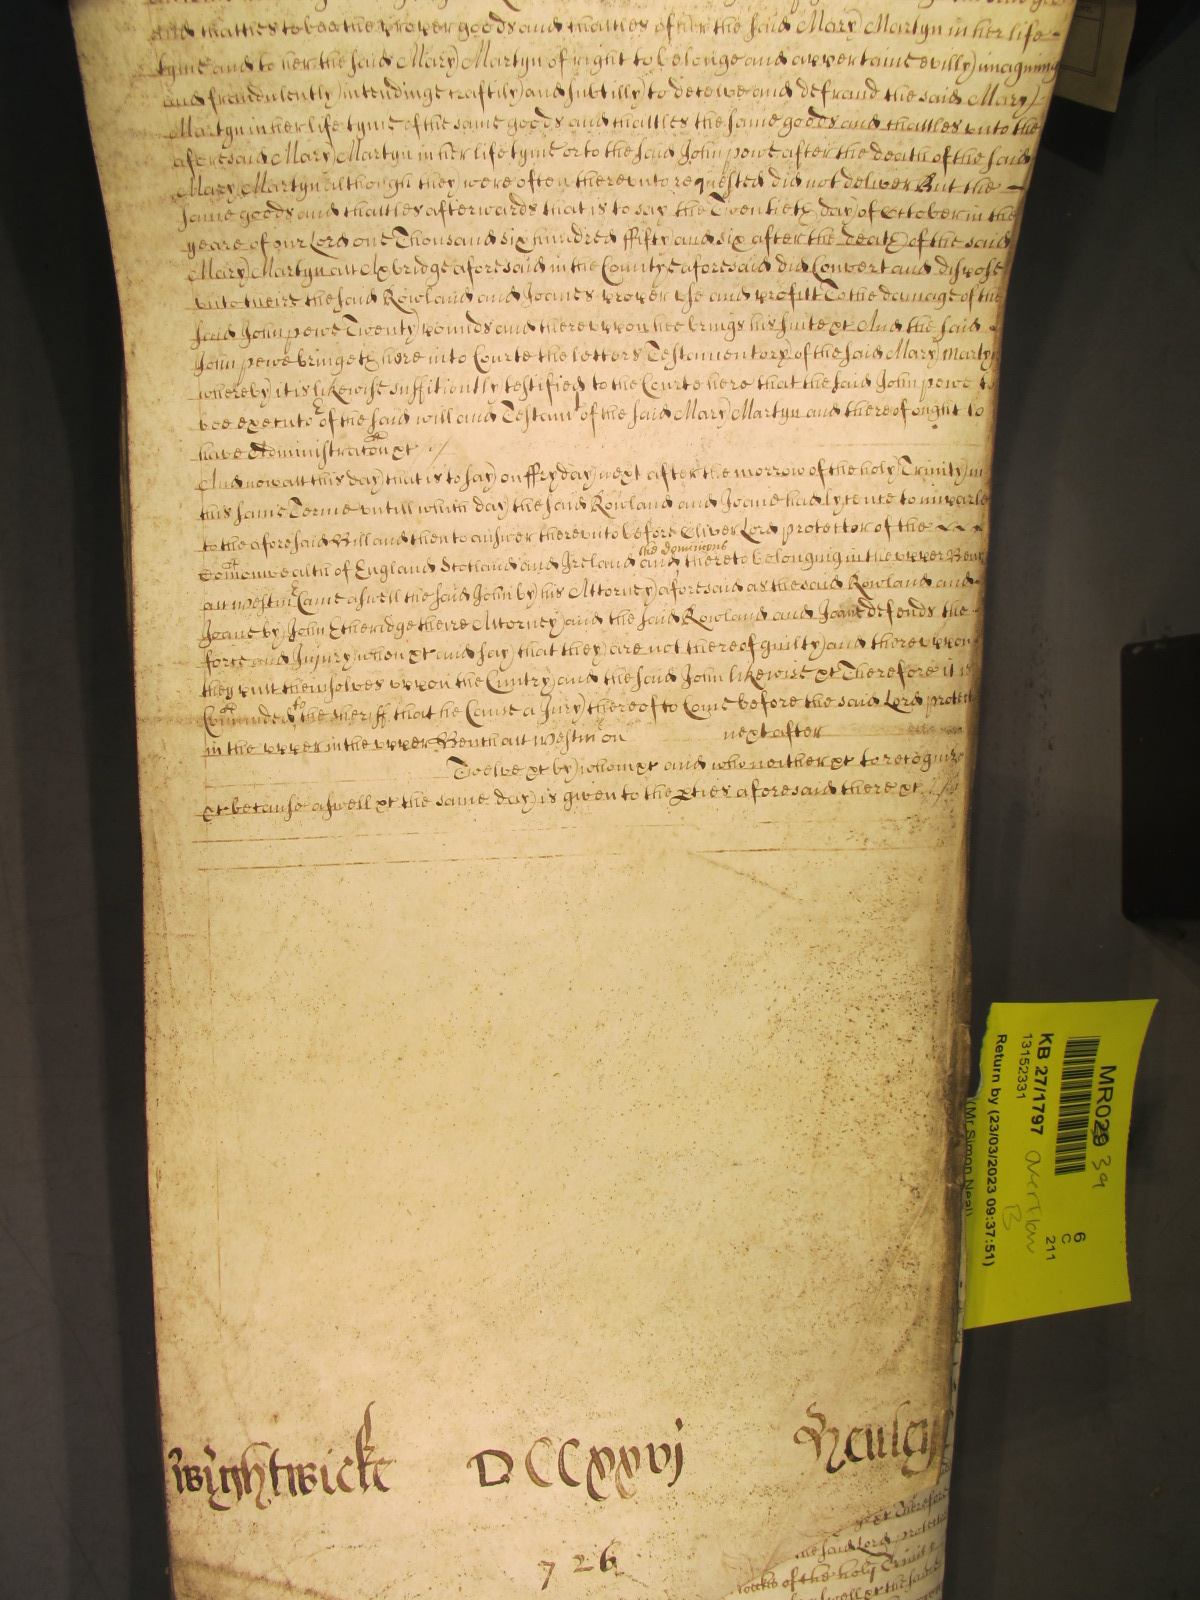 and chattles to bee the proper goods and chattles of her the said Mary Martyn in her life
tyme and to her the said Mary Martyn of right to belonge and appertaine evilly imagining
and fraudulently intendinge craftily and subtilly to deceive and defraud the said Mary
Martyn in her life tyme of the same goods and chattles the same goods and chattles unto the
aforesaid Mary Martyn in her life tyme or to the said John pewe after the death of the said
Mary Martyn although they were often thereunto requested did not deliver But the
same goods and chattles afterwards that is to say the Twentieth day of October in the
yeare of our Lord one Thousand six hundred ffifty and six after the death of the said
Mary Martyn att Axbridge aforesaid in the County aforesaid did Convert and dispose
unto theire the said Rowland and Joanes proper use and profitt To the damage of the
said John pewe Twenty pounds and thereuppon hee brings his suite &c And the said
John pewe bringeth here into Courte the letters Testamentory of the said Mary Martyn
whereby it is likewise suffitiently testified to the Courte here that the said John pewe to
bee executor of the said will and Testamt of the said Mary Martyn and thereof ought to
have Administracon &c
And now att this day that is to say on ffryday next after the morrow of the holy Trinity in
this same Terme untill which day the said Rowland and Joane had lycence to imparle
to the aforesaid Bill and then to answer thereunto before Oliver Lord protector of the
Comonwealth of England Scotland and Ireland and the dominions thereto belonging in the upper Bench
att Westm Came aswell the said John by his Attorney aforesaid as the said Rowland and
Joane by John Etheridge theire Attorney and the said Rowland and Joane defends the
force and Injury when &c and say that they are not thereof guilty and thereuppon
they putt themselves uppon the Cuntry and the said John likewise &c Therefore it is
Comanded to the sheriff that he Cause a Jury thereof to Come before the said Lord protector
in the upper in the upper Bench att Westm on next after
Twelve &c by whom &c and who neither &c to recognize
&c because aswell &c the same day is given to the pties aforesaid there &c
Wightwicke DCCxxvj Henley
726
&c Therefore
the said Lord protector
weeks of the holy Trinitie
aswell &c the same
MR029 39
KB 27/1797
13152331
overflow
B
6
C
211
Return by (23/03/2023 09:37:51)
(Mr Simon Neal)